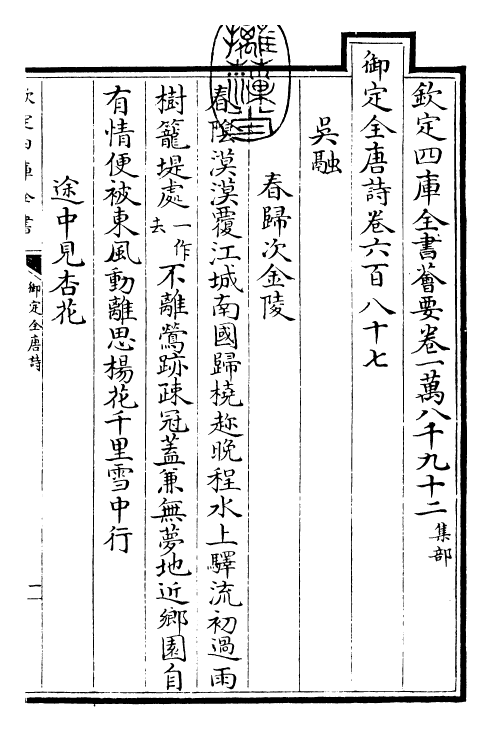 欽定四庫全書薈要卷一萬八千九十二 集部
御定全唐詩卷六百八十七
吳融
春歸次金陵
春陰漠漠覆江城南國歸橈趂晚程水上驛流初過雨
樹籠堤處一作去不離鶯跡疎冠蓋兼無夢地近鄉園自
有情便被東風動離思楊花千里雪中行
途中見杏花
欽定四庫全書
御定全唐詩
一